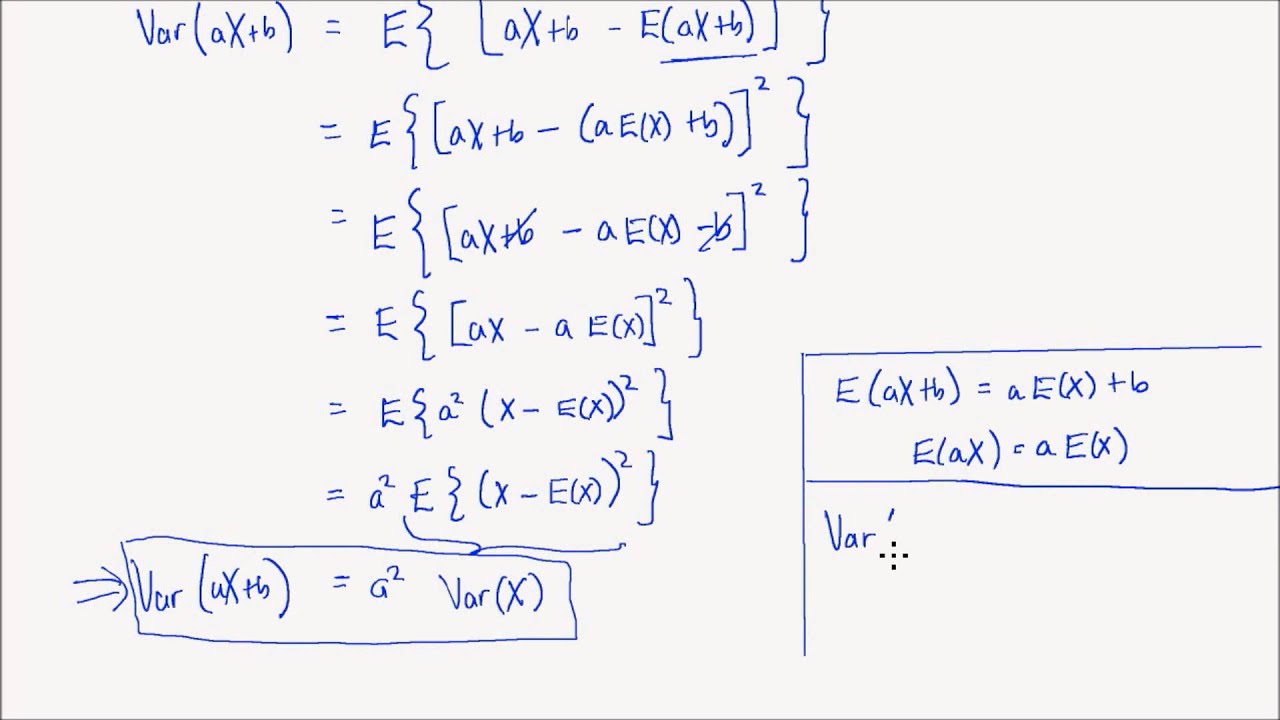 Var(aX+b) = E{ [aX+b - E(aX+b)] }
= E{[aX+b - (aE(X) +b)]²}
= E{[aX+b - aE(X) -b]²}
= E{[aX - a E(X)]²}
= E{a² (X - E(X))²}
= a² E{(X - E(X))²}
⇒ Var(aX+b) = a² Var(X)
E(aX+b) = aE(X)+b
E(aX) = aE(X)
Var